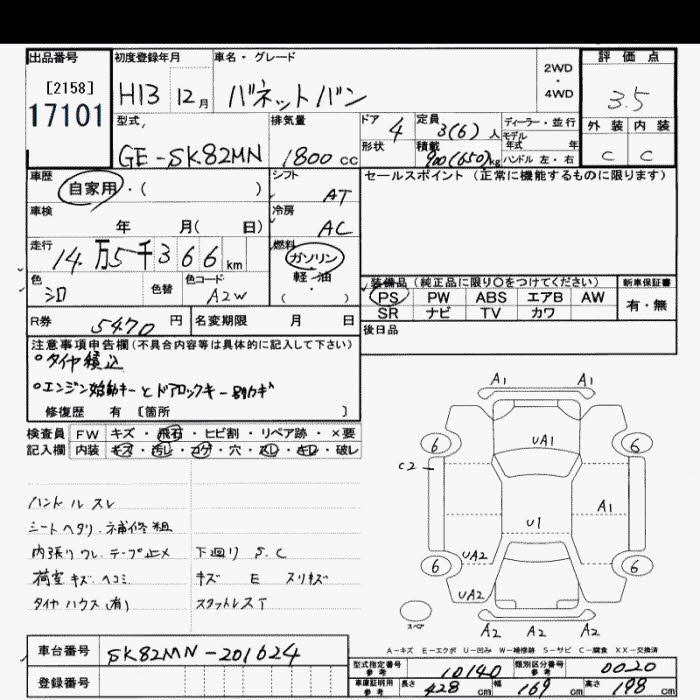 出品番号
[2158]
17101
初度登録年月
H13 12月
車名・グレード
バネットバン
2WD
・
4WD
評価点
3.5
外装 内装
C C
型式
GE-SK82MN
排気量
1800 cc
ドア 4
形状
定員 3(6)人
積載 900(650)kg
ディーラー・並行
モデル
年式 年
ハンドル 左・右
車歴
自家用・( )
シフト
AT
車検
年 月( 日)
冷房
AC
走行
14万5千366 km
燃料
ガソリン
軽・油
( ・ )
色
シロ
色替
色コード
A2W
R券 5470 円
名変期限 月 日
セールスポイント(正常に機能するものに限ります)
装備品(純正品に限り○をつけてください)
新車保証書
PS PW ABS エアB AW
SR ナビ TV カワ
有・無
後日品
注意事項申告欄(不具合内容等は具体的に記入して下さい)
○タイヤ積込
○エンジン始動キーとドアロックキー別カギ
修復歴 有 [箇所 ]
検査員 FW キズ・飛石・ヒビ割・リペア跡・×要
記入欄 内装 キズ・汚レ・コゲ・穴・スレ・キレ・破レ
ハンドルスレ
シートヘタリ.補修粗
内張りワレ.テープ止メ 下廻り S.C
荷室キズ.ヘコミ キズ E スリキズ
タイヤハウス(有) スタットレスT
A1 A1
6 UA1 6
C2
A1
U1
6 UA2 6
UA2
スペア
A2 A2 A2
A-キズ E-エクボ U-凹み W-補修跡 S-サビ C-腐食 XX-交換済
車台番号 SK82MN-201624
登録番号
型式指定番号 参考 10140 類別区分番号 参考 0020
車庫証明用 参考 長さ 428 cm 幅 169 cm 高さ 198 cm